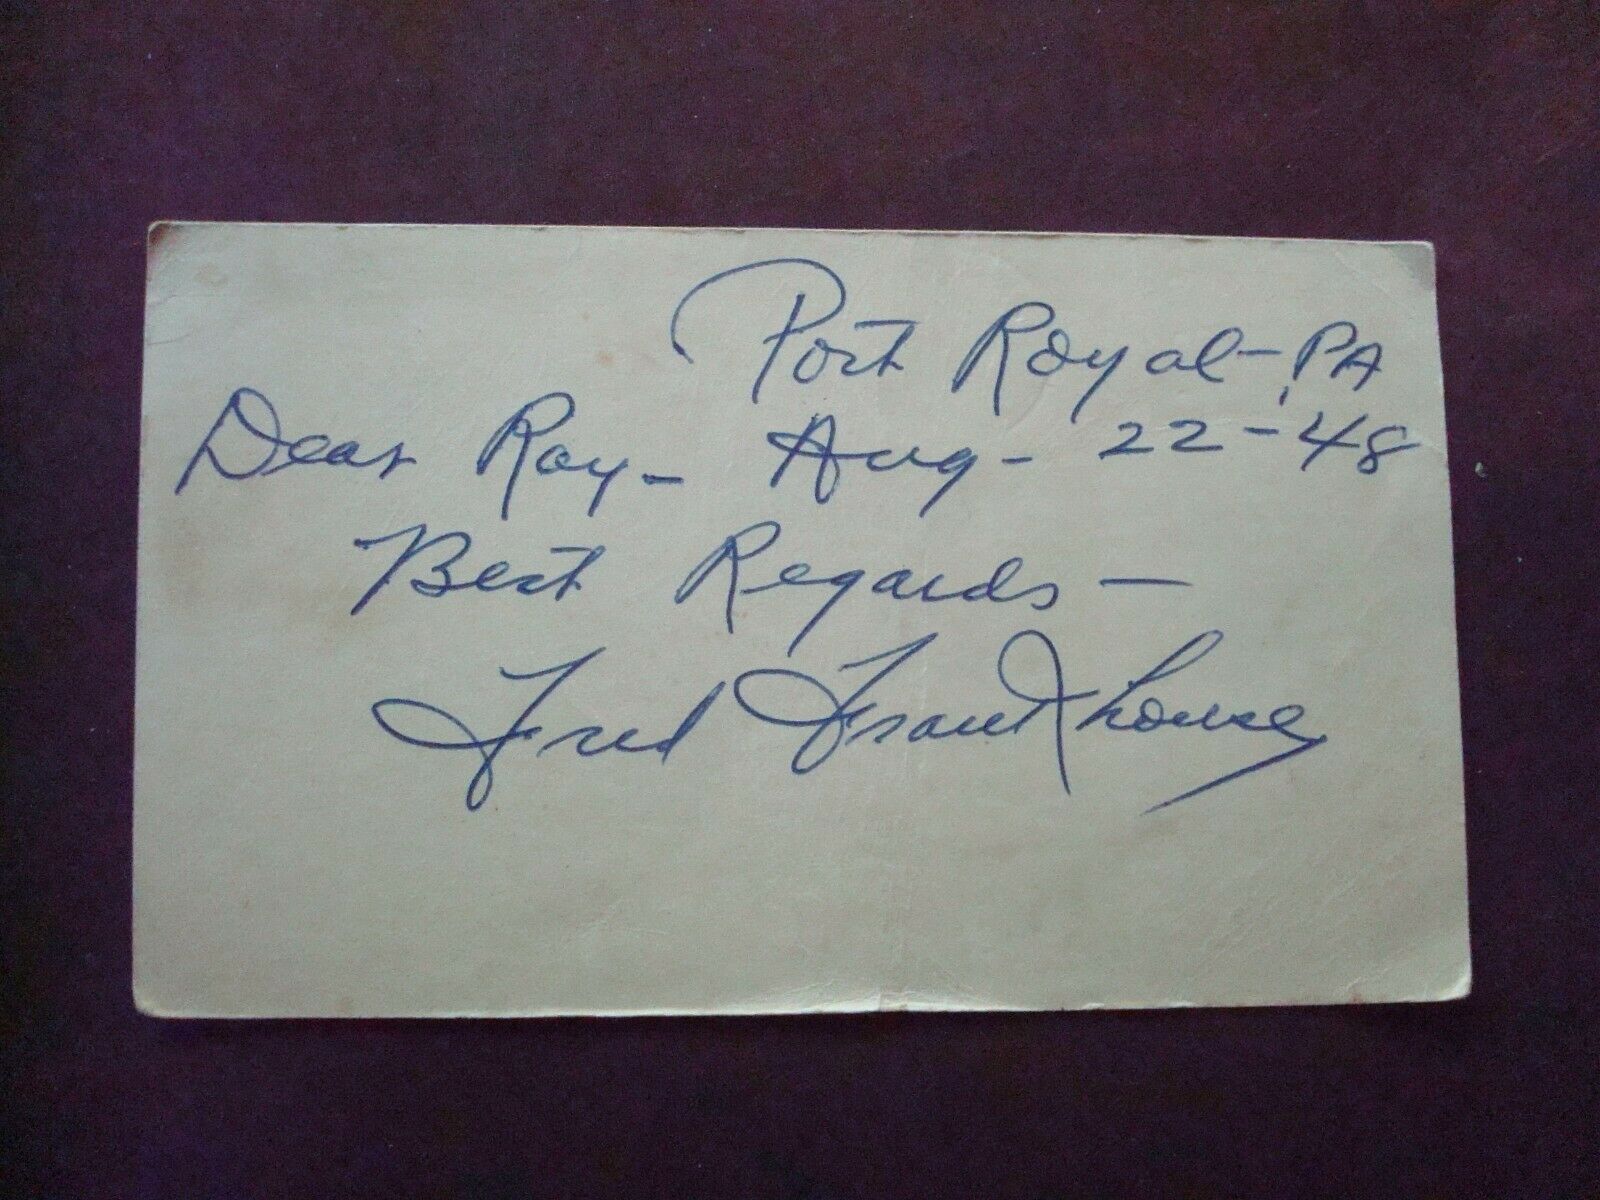 Port Royal-PA
Dear Roy- Aug- 22-48
Best Regards-
Fred Frankhouse